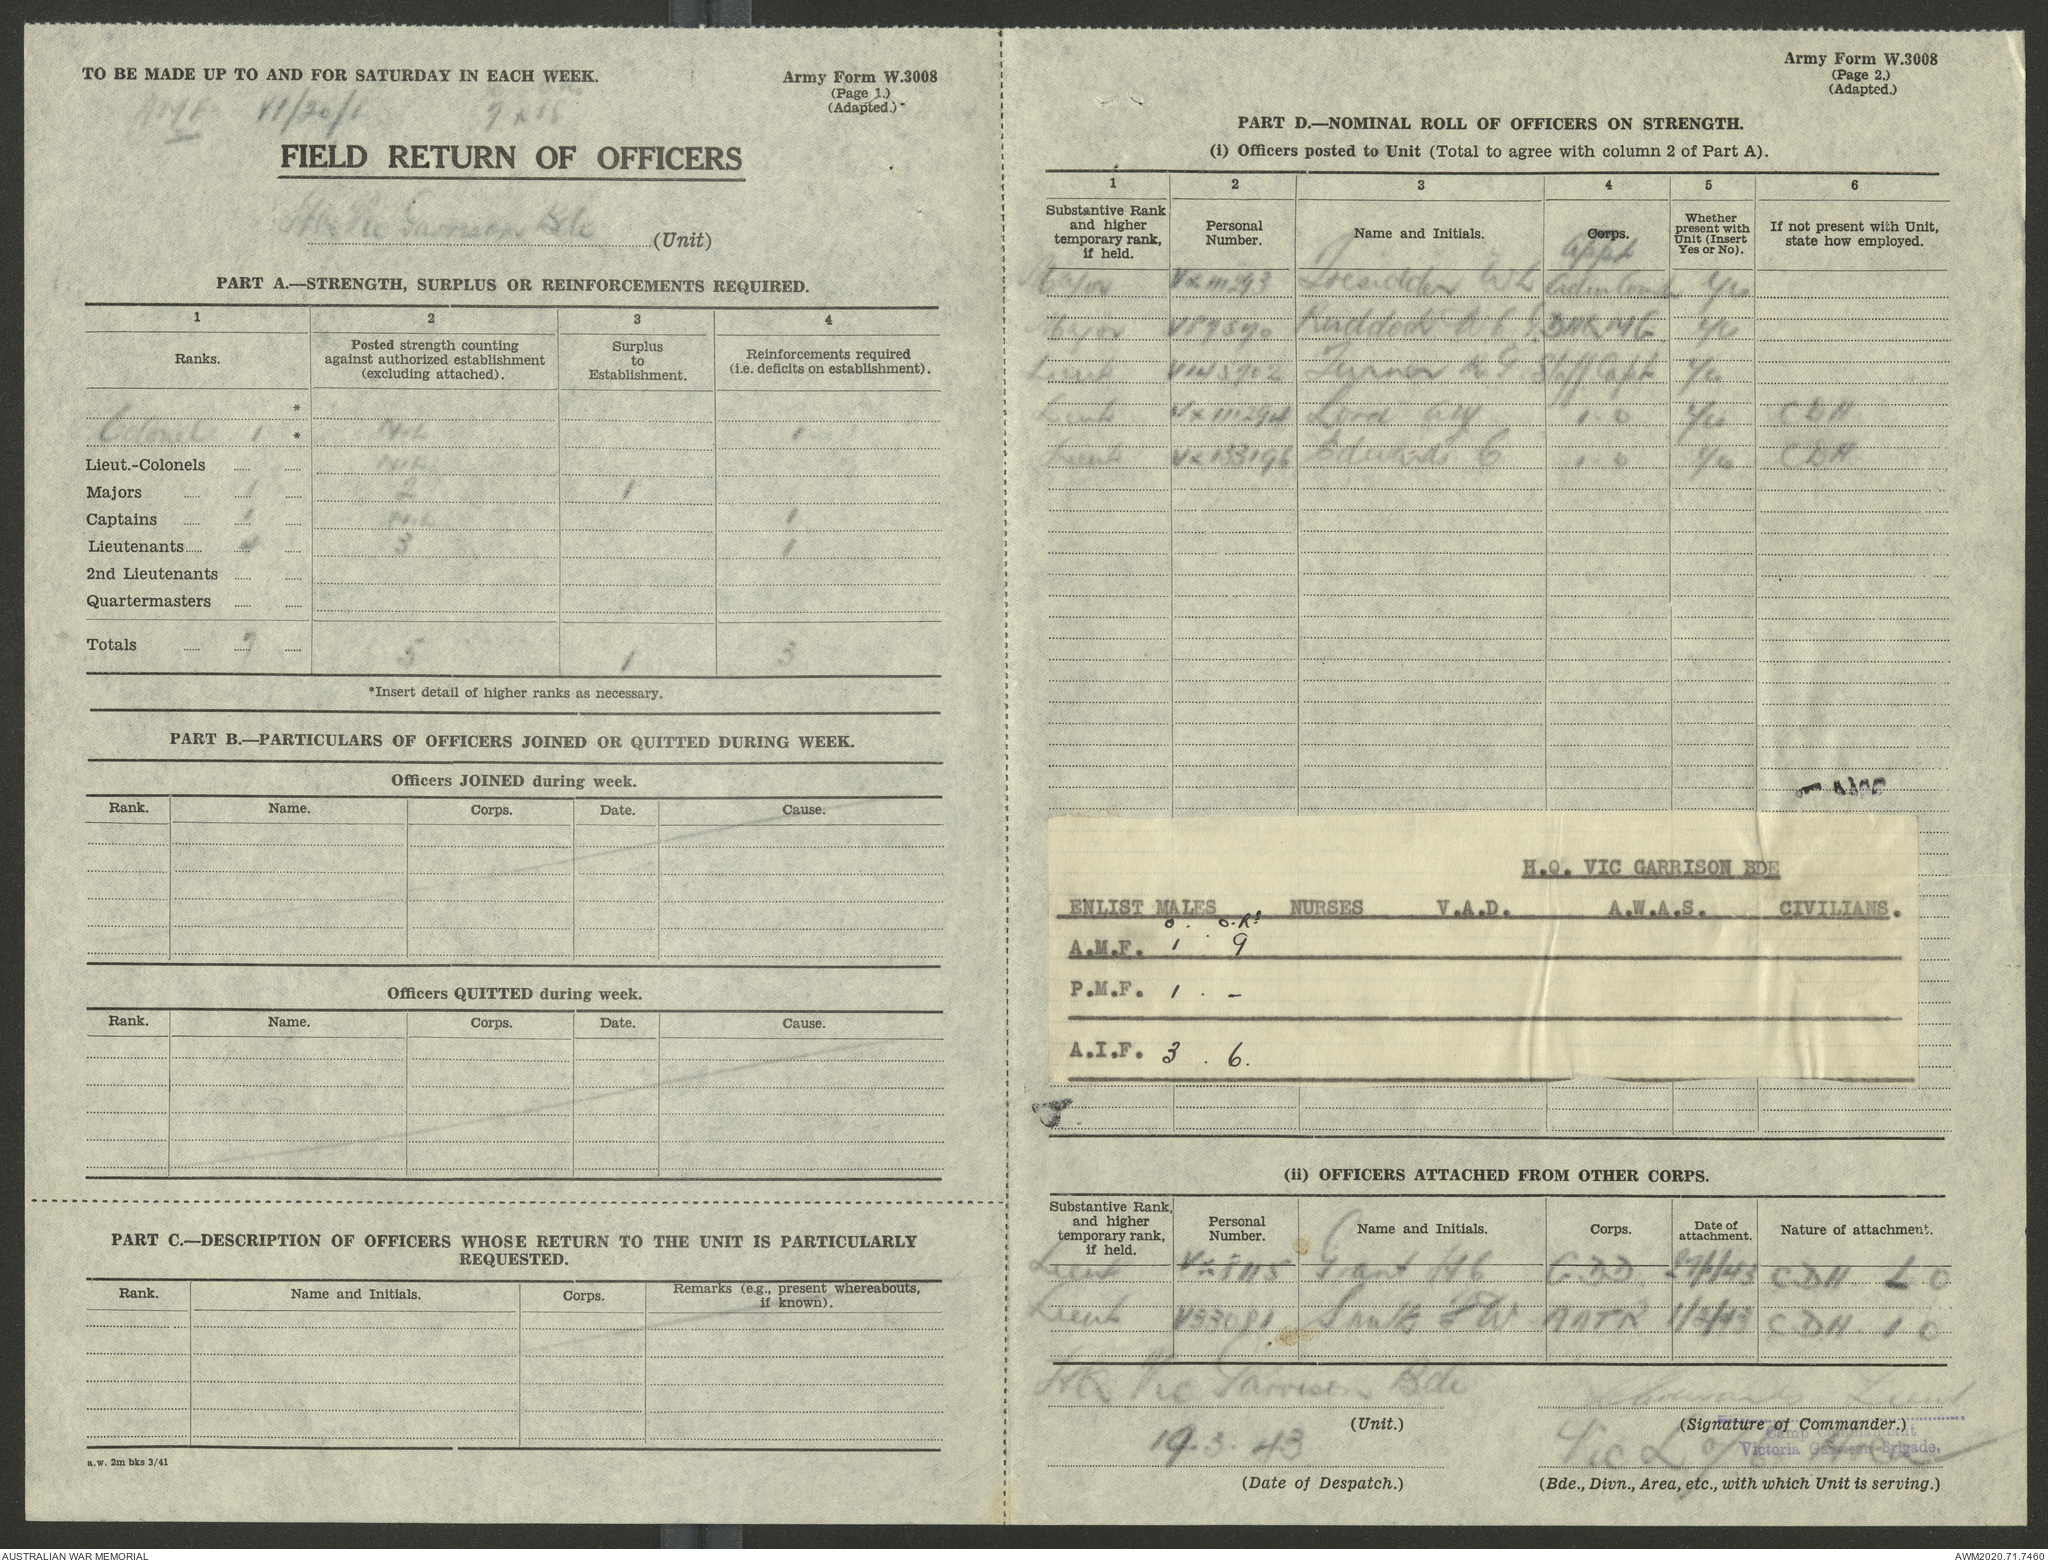 TO BE MADE UP TO AND FOR SATURDAY IN EACH WEEK.
Army Form W.3008
(Page 1.)
(Adapted.)
VI/20/1
FIELD RETURN OF OFFICERS
HQ Vic Garrison Bde (Unit)
PART A.—STRENGTH, SURPLUS OR REINFORCEMENTS REQUIRED.
1 2 3 4
Ranks. Posted strength counting against authorized establishment (excluding attached). Surplus to Establishment. Reinforcements required (i.e. deficits on establishment).
*
Colonel 1 * Nil 1
Lieut.-Colonels Nil
Majors 1 2 1
Captains 1 Nil 1
Lieutenants 4 3 1
2nd Lieutenants
Quartermasters
Totals 7 5 1 3
*Insert detail of higher ranks as necessary.
PART B.—PARTICULARS OF OFFICERS JOINED OR QUITTED DURING WEEK.
Officers JOINED during week.
Rank. Name. Corps. Date. Cause.
Officers QUITTED during week.
Rank. Name. Corps. Date. Cause.
PART C.—DESCRIPTION OF OFFICERS WHOSE RETURN TO THE UNIT IS PARTICULARLY
REQUESTED.
Rank. Name and Initials. Corps. Remarks (e.g., present whereabouts, if known).
a.w. 2m bks 3/41
Army Form W.3008
(Page 2.)
(Adapted.)
PART D.—NOMINAL ROLL OF OFFICERS ON STRENGTH.
(i) Officers posted to Unit (Total to agree with column 2 of Part A).
1 2 3 4 5 6
Substantive Rank and higher temporary rank, if held. Personal Number. Name and Initials. Corps. Whether present with Unit (Insert Yes or No). If not present with Unit, state how employed.
Appt
Major VX111293 Tresidder WL
Major Ruddock
Lieut Turner K G Staff Capt
Lieut VX111294 Lord I O CDH
Lieut VX133196 Edwards C I O CDH
H.Q. VIC GARRISON BDE
ENLIST MALES NURSES V.A.D. A.W.A.S. CIVILIANS.
O. O.Rs
A.M.F. 1 9
P.M.F. 1 . -
A.I.F. 3 . 6.
(ii) OFFICERS ATTACHED FROM OTHER CORPS.
Substantive Rank, and higher temporary rank, if held. Personal Number. Name and Initials. Corps. Date of attachment. Nature of attachment.
Lieut Grant CDD CDH L O
Lieut V33081 AATR 1/3/43 CDH I O
HQ Vic Garrison Bde
(Unit.)
Edwards Lieut
(Signature of Commander.)
Camp Commandant
Victoria Garrison Brigade.
19.3.43
(Date of Despatch.)
Vic L of C Area
(Bde., Divn., Area, etc., with which Unit is serving.)
AUSTRALIAN WAR MEMORIAL
AWM2020.71.7460